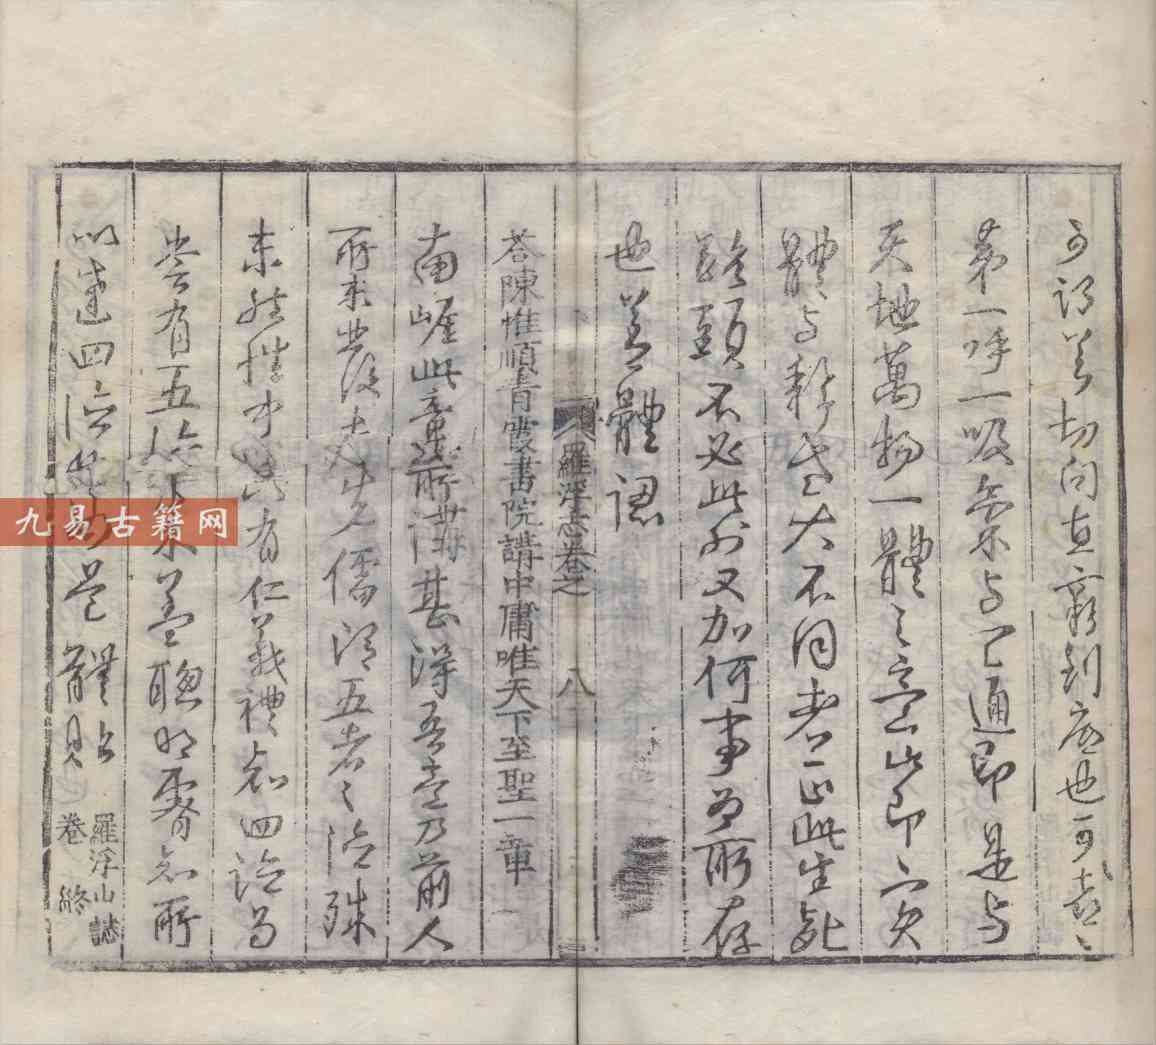 可謂善切問直窮到底也可喜可喜
第一呼一吸氣與之通即是與
天地萬物一體之意此即  
體與 者大不同者正此生死
路頭不必此外又加何事為所存
也善體認
羅浮志卷之 八
答陳惟順青霞書院講中庸唯天下至聖一章
南崖此章所講甚得吾意乃前人
所未發後來先儒謂五者之德殊
未然性中只有仁義禮知四德而
豈有五德來蓋聰明睿知所
以達四德 是體貼體見
羅浮山誌
卷 終
九易古籍网